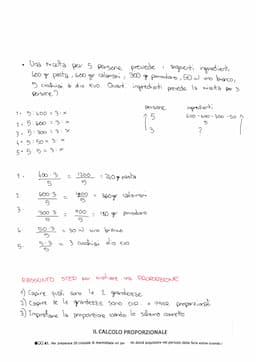 • Una ricetta per 5 persone prevede i seguenti ingredienti:
400 gr pasta, 600 gr calamari, 300 gr pomodoro, 50 ml vino bianco,
5 cucchiai di olio evo. Quanti ingredienti prevede la ricetta per 3
persone?
persone ingredienti
5 400 - 600 - 300 - 50
5
3 ?
1 • 5 : 400 = 3 : x
2 • 5 : 600 = 3 : x
3 • 5 : 300 = 3 : x
4 • 5 : 50 = 3 : x
5 • 5 : 5 = 3 : x
1 . 400·3 / 5 = 1200 / 5 = 240 gr pasta
2 600·3 / 5 = 1800 / 5 = 360 gr calamari
3 300·3 / 5 = 900 / 5 = 180 gr pomodoro
4. 50·3 / 5 = 30 ml vino bianco
5. 5·3 / 5 = 3 cucchiai olio evo
RIASSUNTO STEP per risolvere una PROPORZIONE
1) Capire quali sono le 2 grandezze
2) Capire se le grandezze sono dir. o inver. proporzionali
3) Impostare la proporzione usando lo schema corretto
IL CALCOLO PROPORZIONALE
41. Per preparare 20 crostate di marmellata